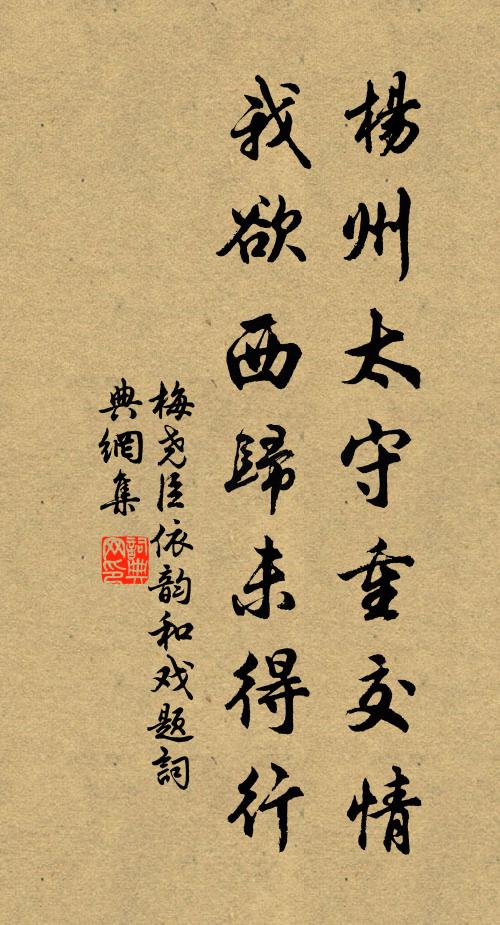 楊州太守重交情
我欲西歸未得行
梅尧臣依韵和戏题詞
典網集
詞典網印